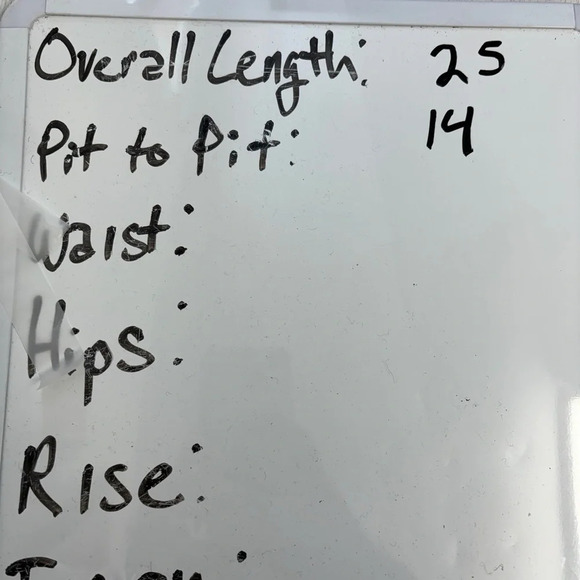 Overall Length: 25
Pit to Pit: 14
Waist:
Hips:
Rise: